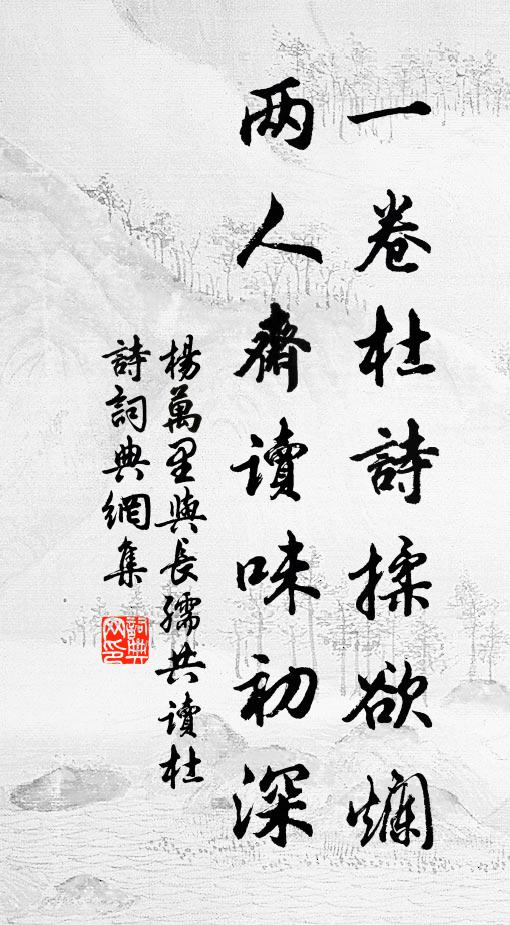 一卷杜詩揉欲爛
两人齊读味初深
楊萬里與長孺共讀杜
詩詞典網集